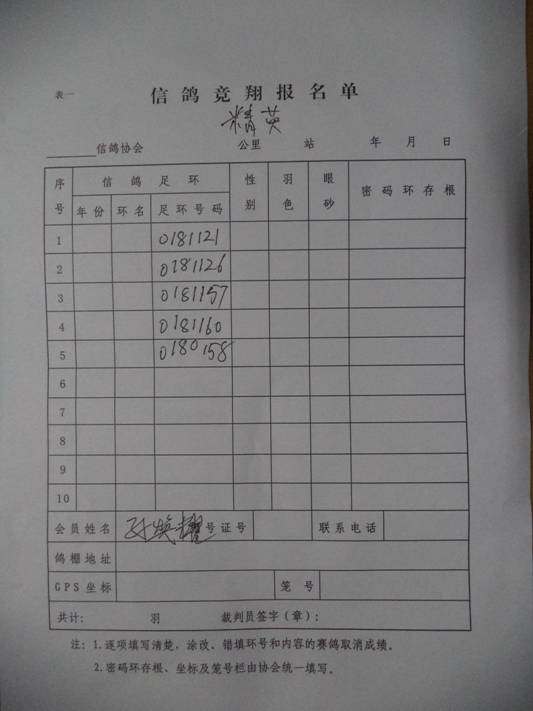 表一
信鸽竞翔报名单
精英
信鸽协会 公里 站 年 月 日
序号 信鸽足环 性别 羽色 眼砂 密码环存根
年份 环名 足环号码
1 0181121
2 0181126
3 0181157
4 0181160
5 0180158
6
7
8
9
10
会员姓名 号证号 联系电话
鸽棚地址
GPS坐标 笼号
共计: 羽 裁判员签字(章):
注: 1.逐项填写清楚,涂改、错填环号和内容的赛鸽取消成绩。
2.密码环存根、坐标及笼号栏由协会统一填写。